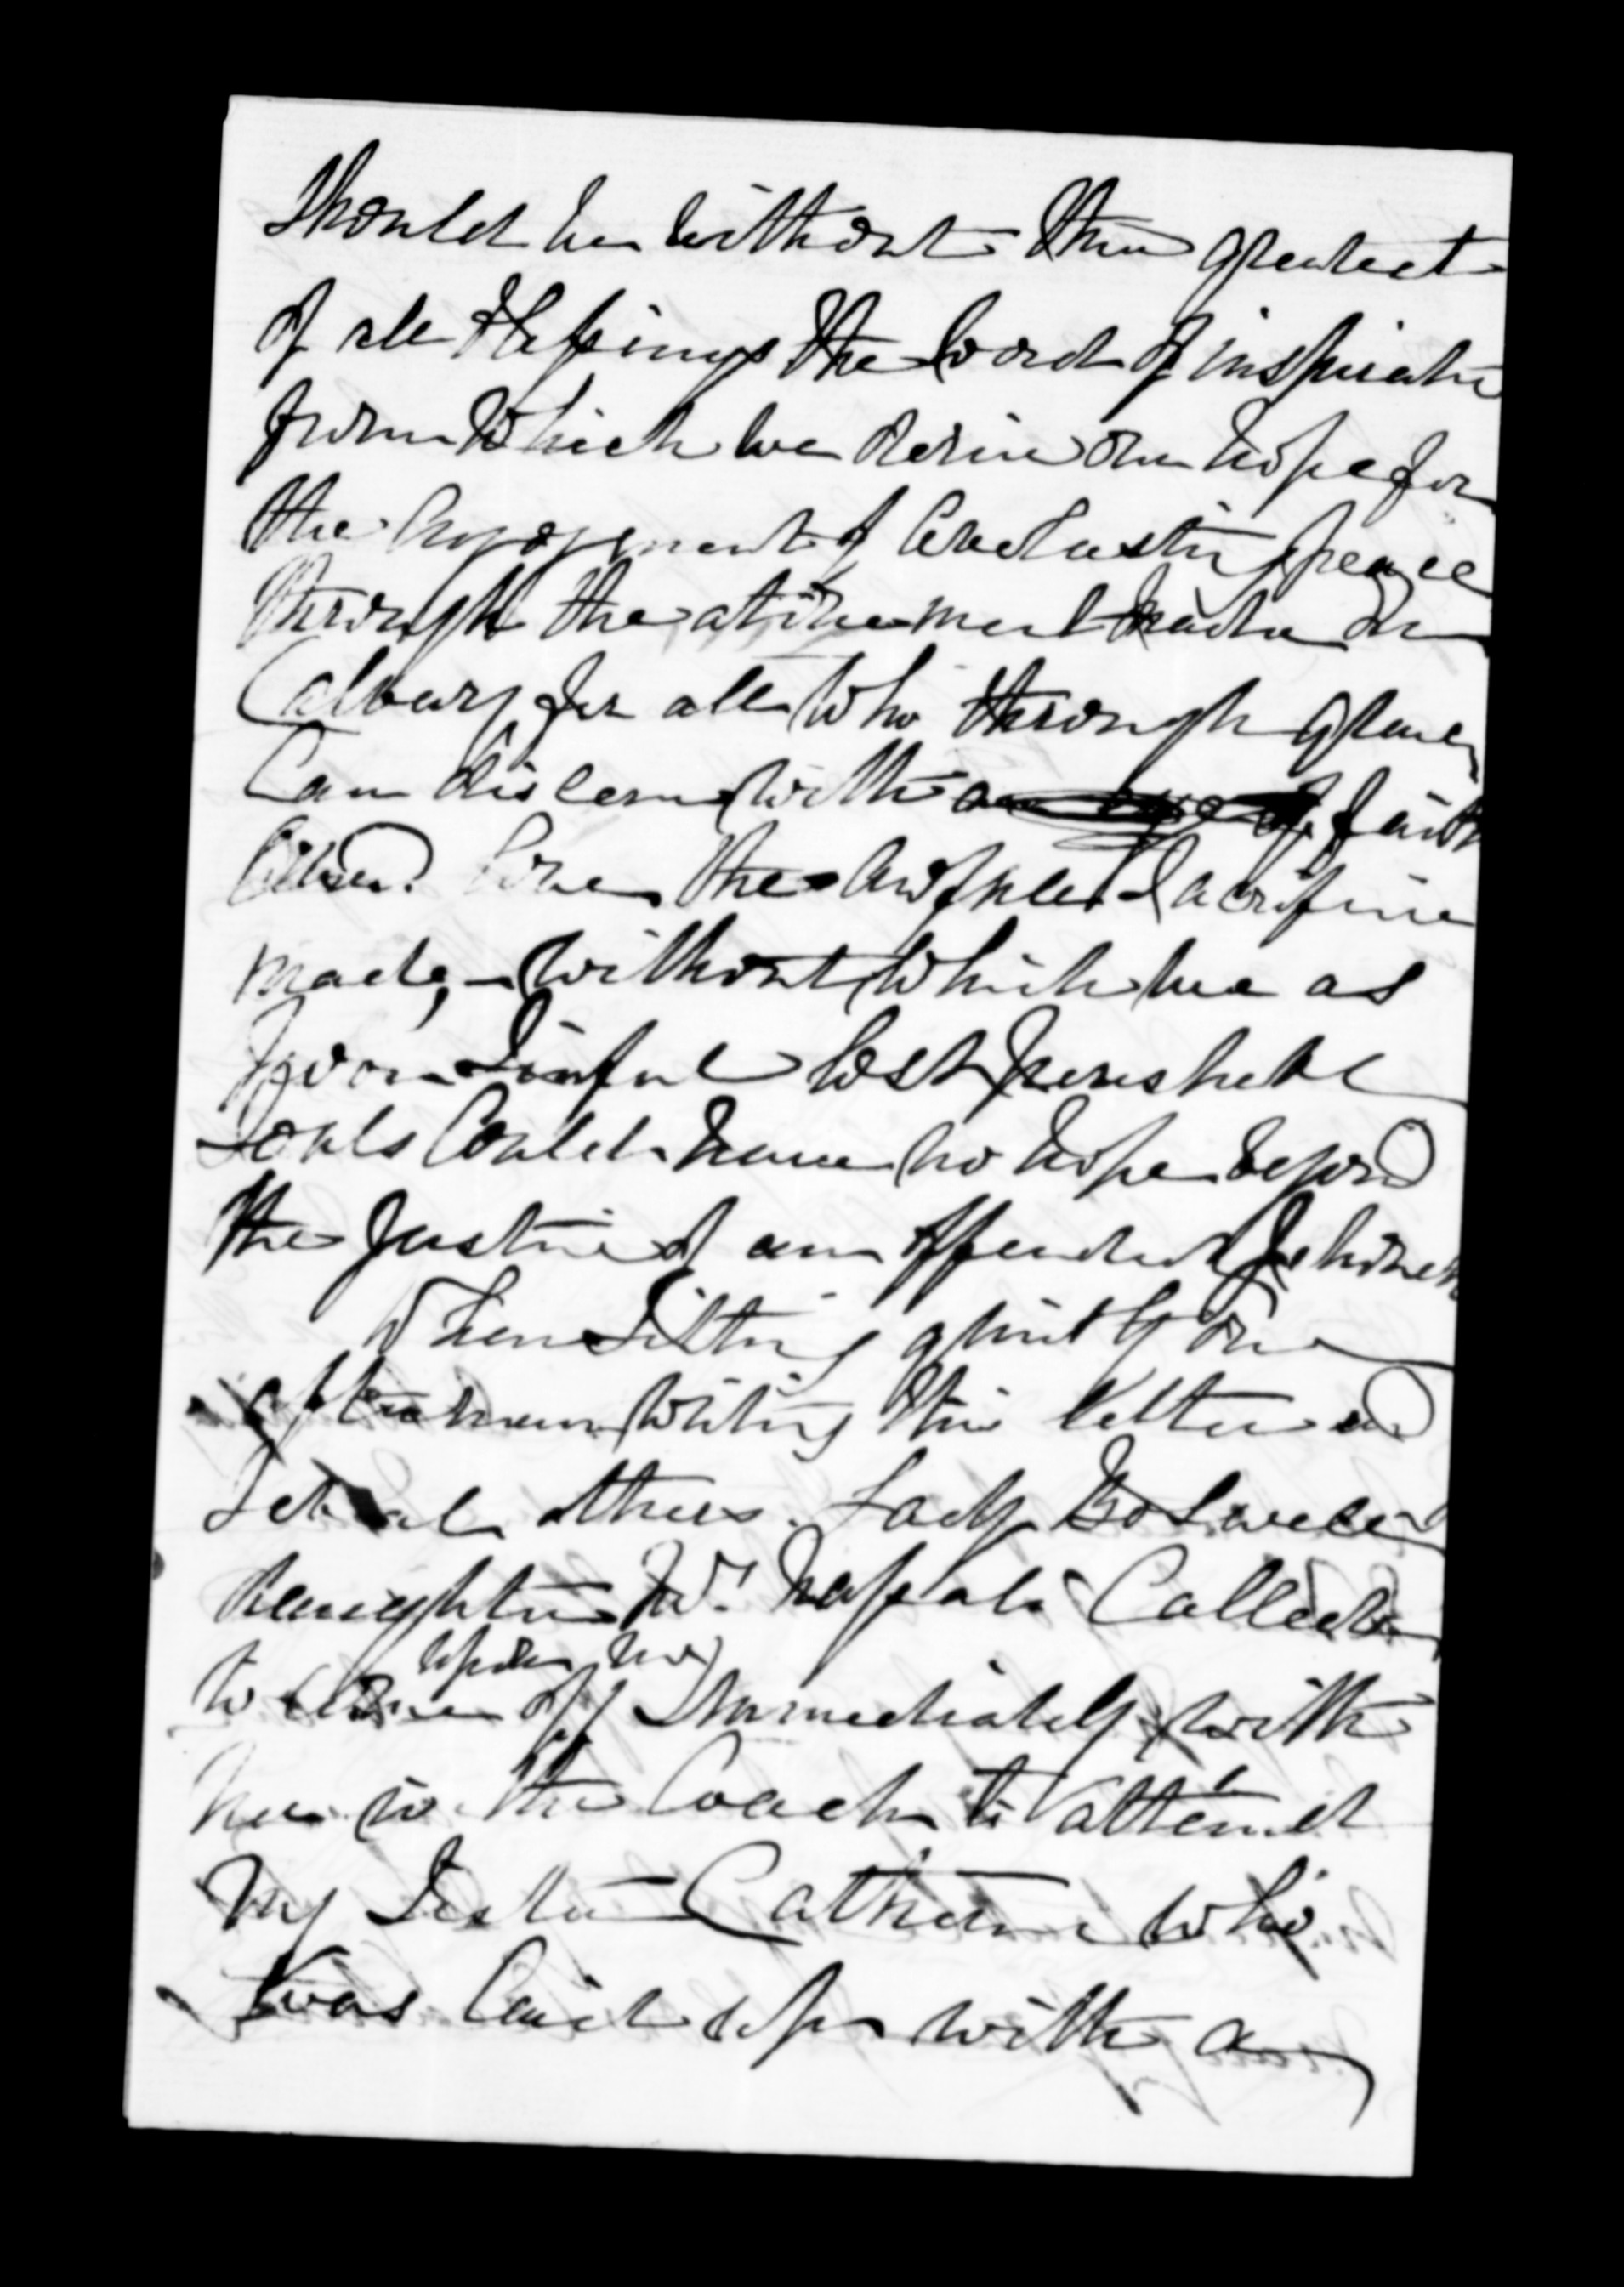 should be without this greatest
of all blessings the word of inspiration
from which we derive our hope for
the enjoyment of everlasting peace
through the atonement made on
Calvary for all who through grace
can discern with an eye of faith
and love the awful sacrifice
made, - without which we as
poor sinful lost perishable
souls could have no hope beyond
the justice of an offended Jehovah
When sitting quietly one
afternoon writing this letter and
several others. Lady Boswell
daughter Mrs. called
upon me
to come off immediately with
her in the Coach to attend
my Sister Catherine who
was laid up with a